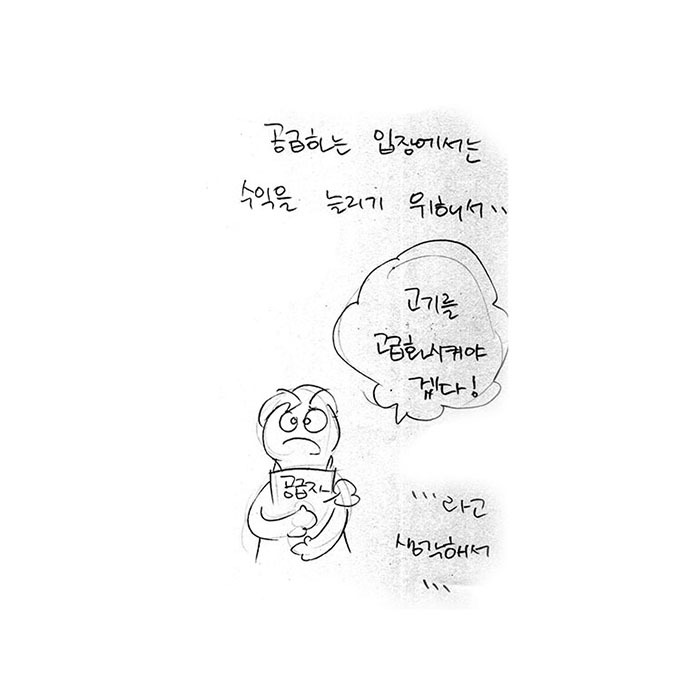 공급하는 입장에서는
수익을 늘리기 위해서..
고기를
고급화시켜야
겠다!
공급자
...라고
생각해서
...